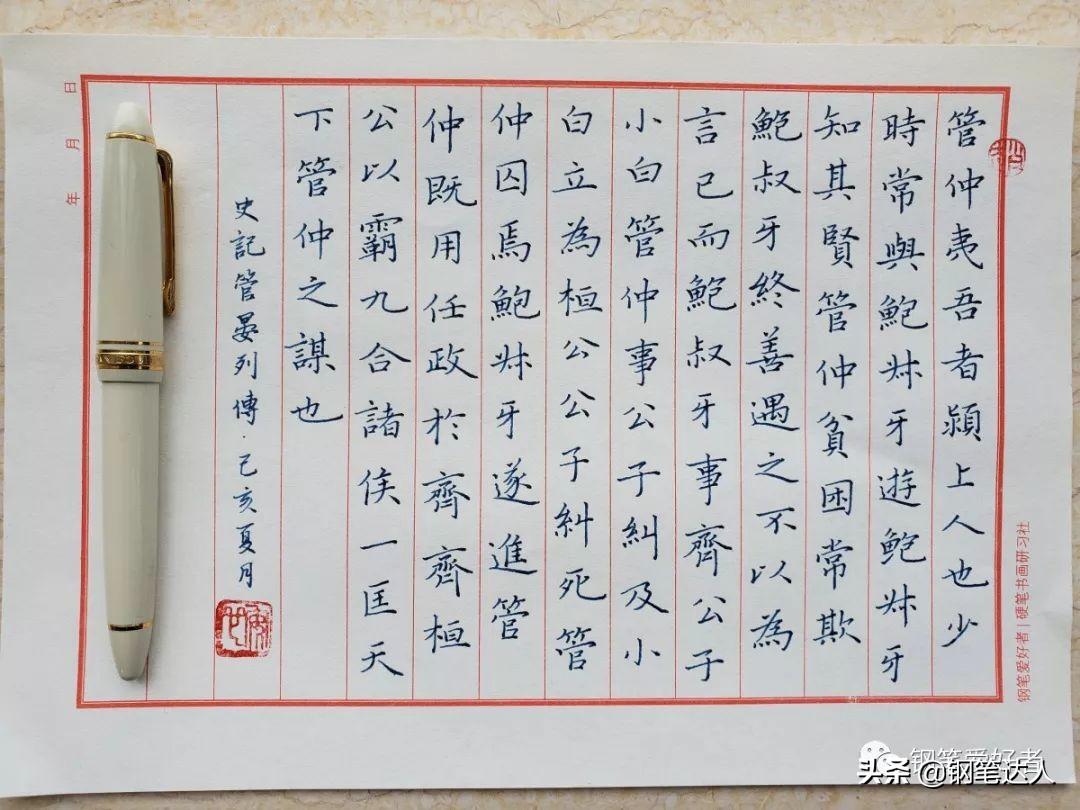 管仲夷吾者潁上人也少
時常與鮑叔牙遊鮑叔牙
知其賢管仲貧困常欺
鮑叔牙終善遇之不以為
言已而鮑叔牙事齊公子
小白管仲事公子糾及小
白立為桓公公子糾死管
仲囚焉鮑叔牙遂進管
仲既用任政於齊齊桓
公以霸九合諸侯一匡天
下管仲之謀也
史記管晏列傳·己亥夏月
年 月 日
钢笔爱好者|硬笔书画研习社
钢笔爱好者
头条 @钢笔达人